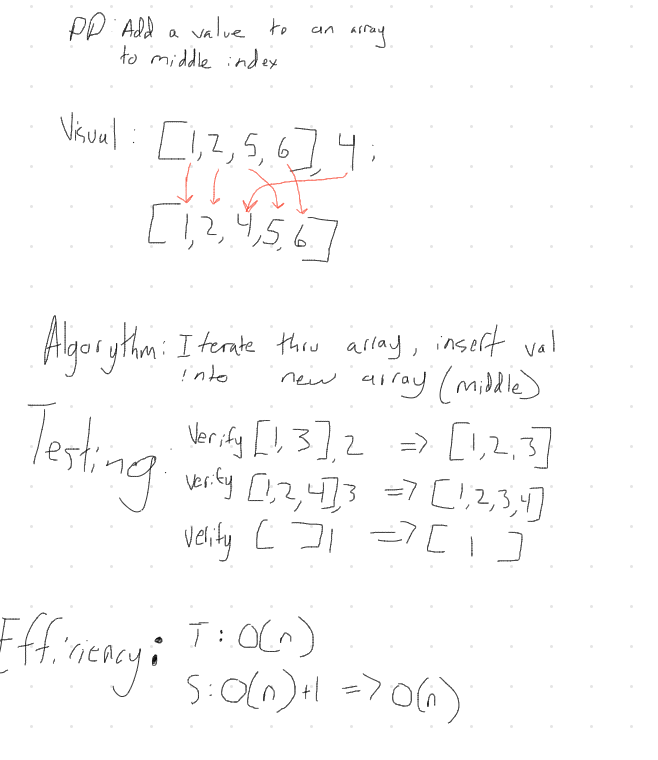 PD: Add a value to an array
to middle index
Visual: [1,2,5,6],4;
[1,2,4,5,6]
Algorythm: Iterate thru array, insert val
into new array (middle)
Testing:
Verify [1,3],2 => [1,2,3]
verify [1,2,4],3 => [1,2,3,4]
verify [ ]1 => [ 1 ]
Efficiency: T: O(n)
S: O(n)+1 => O(n)